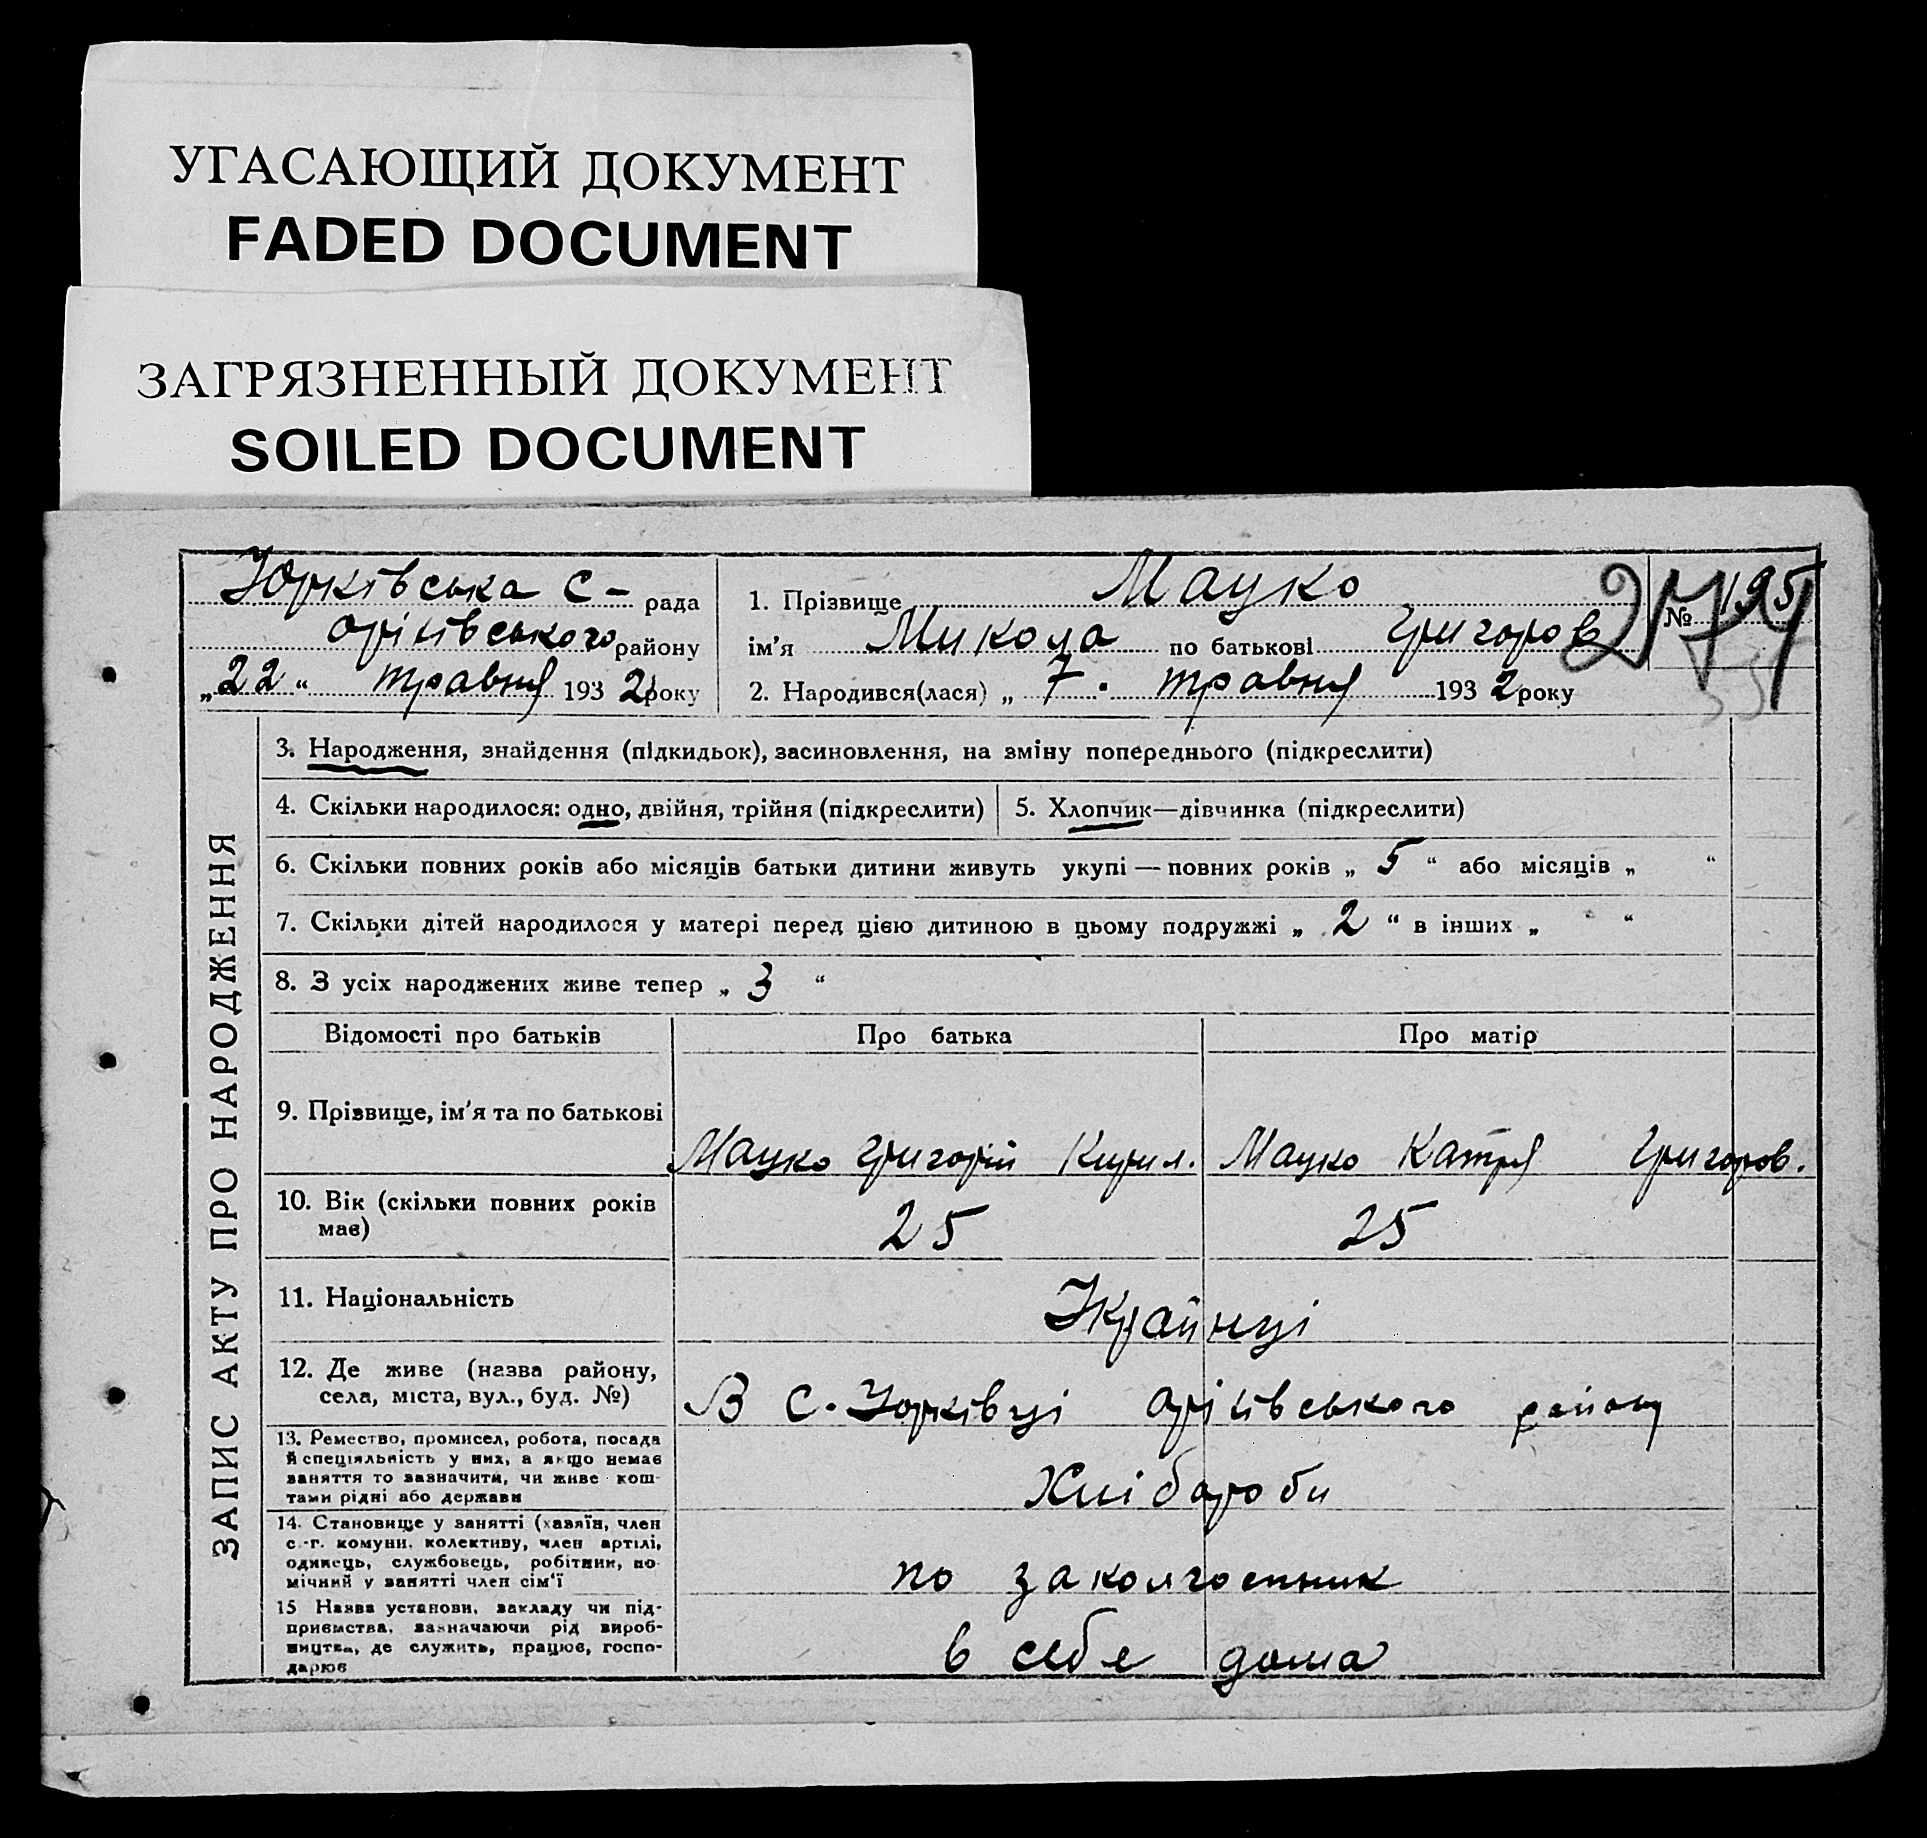 УГАСАЮЩИЙ ДОКУМЕНТ
FADED DOCUMENT
ЗАГРЯЗНЕННЫЙ ДОКУМЕНТ
SOILED DOCUMENT
Юрківська с- рада
Оріхівського району
„22“ травня 1932 року
1. Прізвище Мацко
ім'я Микола по батькові Григоров
2. Народився(лася) „ 7. травня 1932 року
№ 195
274
ЗАПИС АКТУ ПРО НАРОДЖЕННЯ
3. Народження, знайдення (підкидьок), засиновлення, на зміну попереднього (підкреслити)
4. Скільки народилося: одно, двійня, трійня (підкреслити)
5. Хлопчик—дівчинка (підкреслити)
6. Скільки повних років або місяців батьки дитини живуть укупі — повних років „ 5 “ або місяців „ “
7. Скільки дітей народилося у матері перед цією дитиною в цьому подружжі „ 2 “ в інших „ “
8. З усіх народжених живе тепер „ 3 “
Відомості про батьків
Про батька
Про матір
9. Прізвище, ім'я та по батькові
Мацко Григорій Кирил.
Мацко Катря Григоров.
10. Вік (скільки повних років
має)
25
25
11. Національність
Українці
12. Де живе (назва району,
села, міста, вул., буд. №)
В с. Юрківці Оріхівського району
13. Ремество, промисел, робота, посада
й спеціяльність у них, а якщо немає
заняття то зазначити, чи живе кош-
тами рідні або держави
Хлібороби
14. Становище у занятті (хазяїн, член
с.-г. комуни, колективу, член артілі,
одинець, службовець, робітник, по-
мічний у занятті член сім'ї
по за колгоспник
15 Назва установи, закладу чи під-
приємства, зазначаючи рід вироб-
ництва, де служить, працює, госпо-
дарює
в себе дома